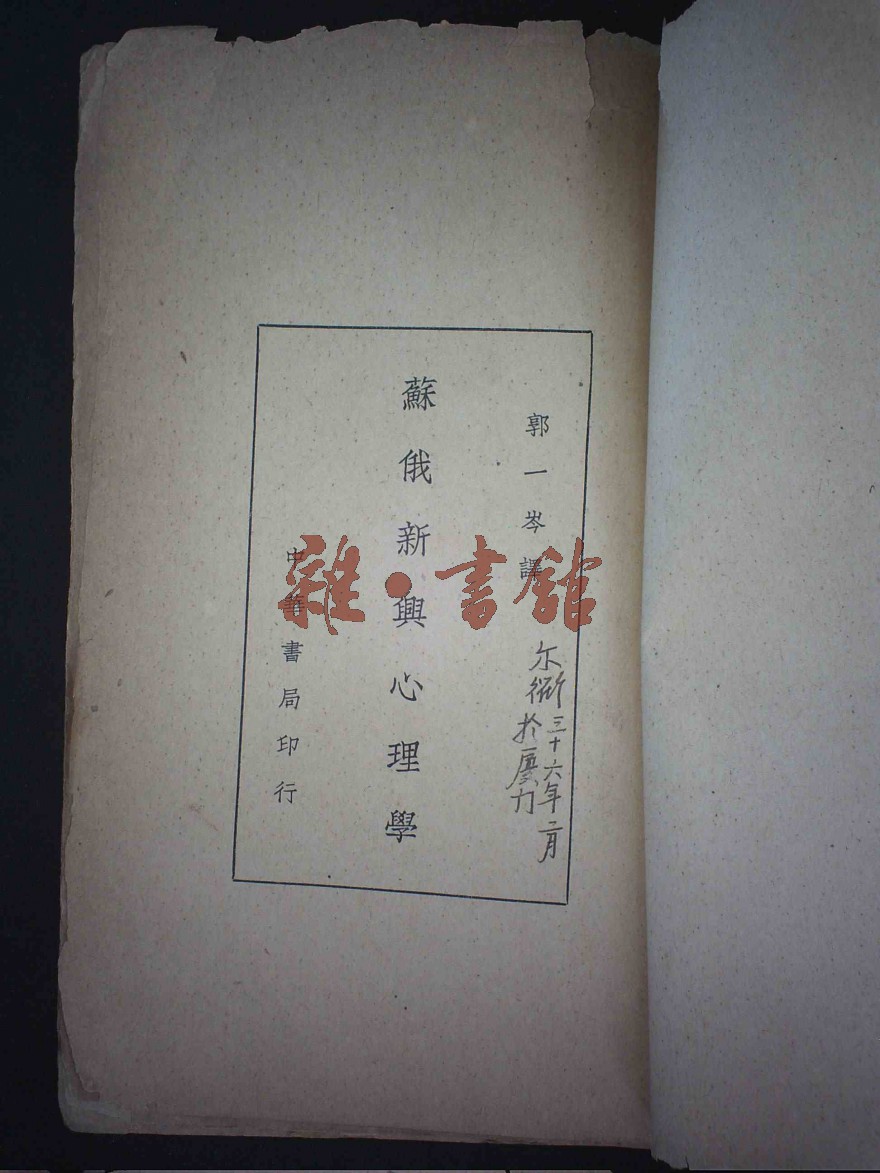 郭一岑譯
蘇俄新興心理學
中華書局印行
三十六年二月
於廈
雜·書館